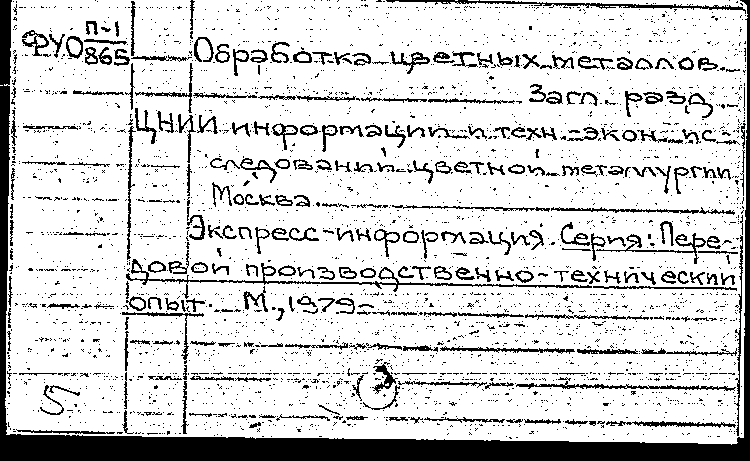 ФУО П-1/865
Обработка цветных металлов.
Загл. разд.
ЦНИИ информации и техн.-экон. ис-
следований цветной металлургии.
Москва.
Экспресс-информация. Серия: Пере-
довой производственно-технический
опыт. М., 1979-
5
3